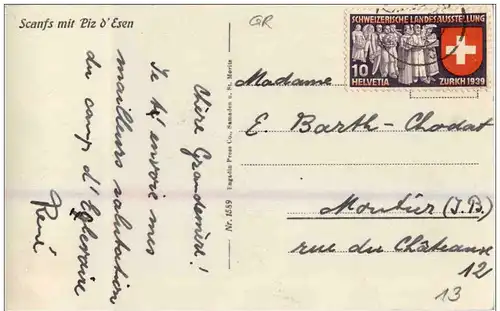 Scanfs mit Piz d'Esen
QR
SCHWEIZERISCHE LANDESAUSSTELLUNG
10
HELVETIA
ZURICH 1939
Chère Grandmère!
Je t'envoie mes
mailleurs salutation
du camp d'
René
Engadin Press Co., Samaden u. St. Moritz
Nr. 1589
Madame
E. Barth-Chodat
Moutier (J.B.)
rue du Château
12
13